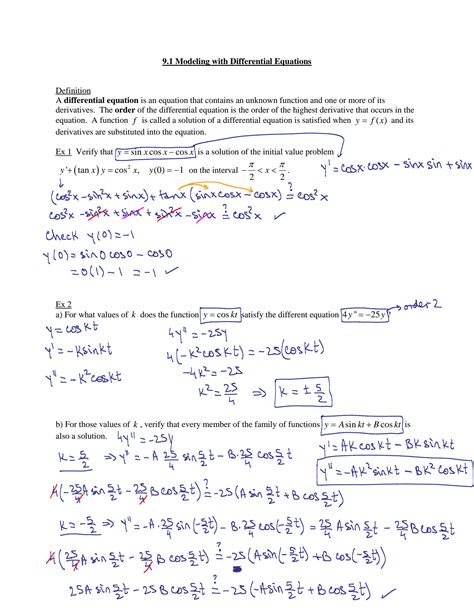 9.1 Modeling with Differential Equations
Definition
A differential equation is an equation that contains an unknown function and one or more of its
derivatives. The order of the differential equation is the order of the highest derivative that occurs in the
equation. A function f is called a solution of a differential equation is satisfied when y = f(x) and its
derivatives are substituted into the equation.
Ex 1 Verify that y = sin x cos x − cos x is a solution of the initial value problem
y'+(tan x) y = cos² x, y(0) = −1 on the interval −π/2 < x < π/2.
y' = cosx·cosx − sinx sinx + sinx
(cos²x − sin²x + sinx) + tanx (sinx cosx − cosx) ?= cos²x
cos²x − sin²x + sinx + sin²x − sinx ?= cos²x ✓
Check y(0) = −1
y(0) = sin0 cos0 − cos0
= 0(1) − 1 = −1 ✓
Ex 2
→ order 2
a) For what values of k does the function y = cos kt satisfy the different equation 4y'' = −25y?
y = cos kt
y' = −k sin kt
y'' = −k² cos kt
4y'' = −25y
4(−k² cos kt) = −25(cos kt)
−4k² = −25
k² = 25/4 ⇒ k = ± 5/2
b) For those values of k, verify that every member of the family of functions y = A sin kt + B cos kt is
also a solution. 4y'' = −25y
y' = Ak cos kt − Bk sin kt
y'' = −Ak² sin kt − Bk² cos kt
k = 5/2 ⇒ y'' = −A 25/4 sin 5/2 t − B· 25/4 cos 5/2 t
4(−25/4 A sin 5/2 t − 25/4 B cos 5/2 t) ?= −25 (A sin 5/2 t + B cos 5/2 t) ✓
k = −5/2 ⇒ y'' = −A· 25/4 sin(−5/2 t) − B· 25/4 cos(−5/2 t) = 25/4 A sin 5/2 t − 25/4 B cos 5/2 t
4(25/4 A sin 5/2 t − 25/4 B cos 5/2 t) ?= −25 (A sin(−5/2 t) + B cos(−5/2 t))
25A sin 5/2 t − 25 B cos 5/2 t ?= −25 (−A sin 5/2 t + B cos 5/2 t) ✓